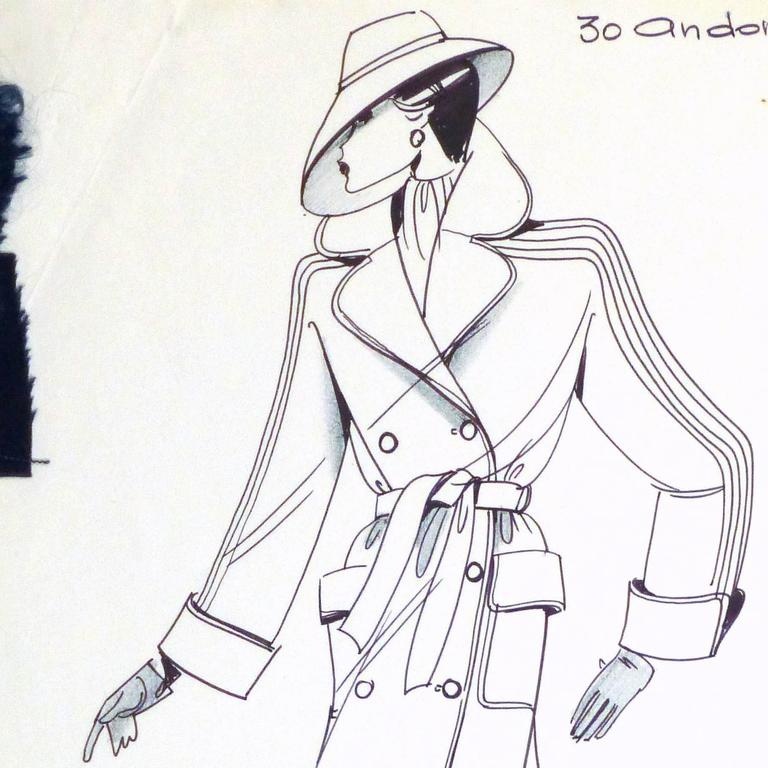 30 andor